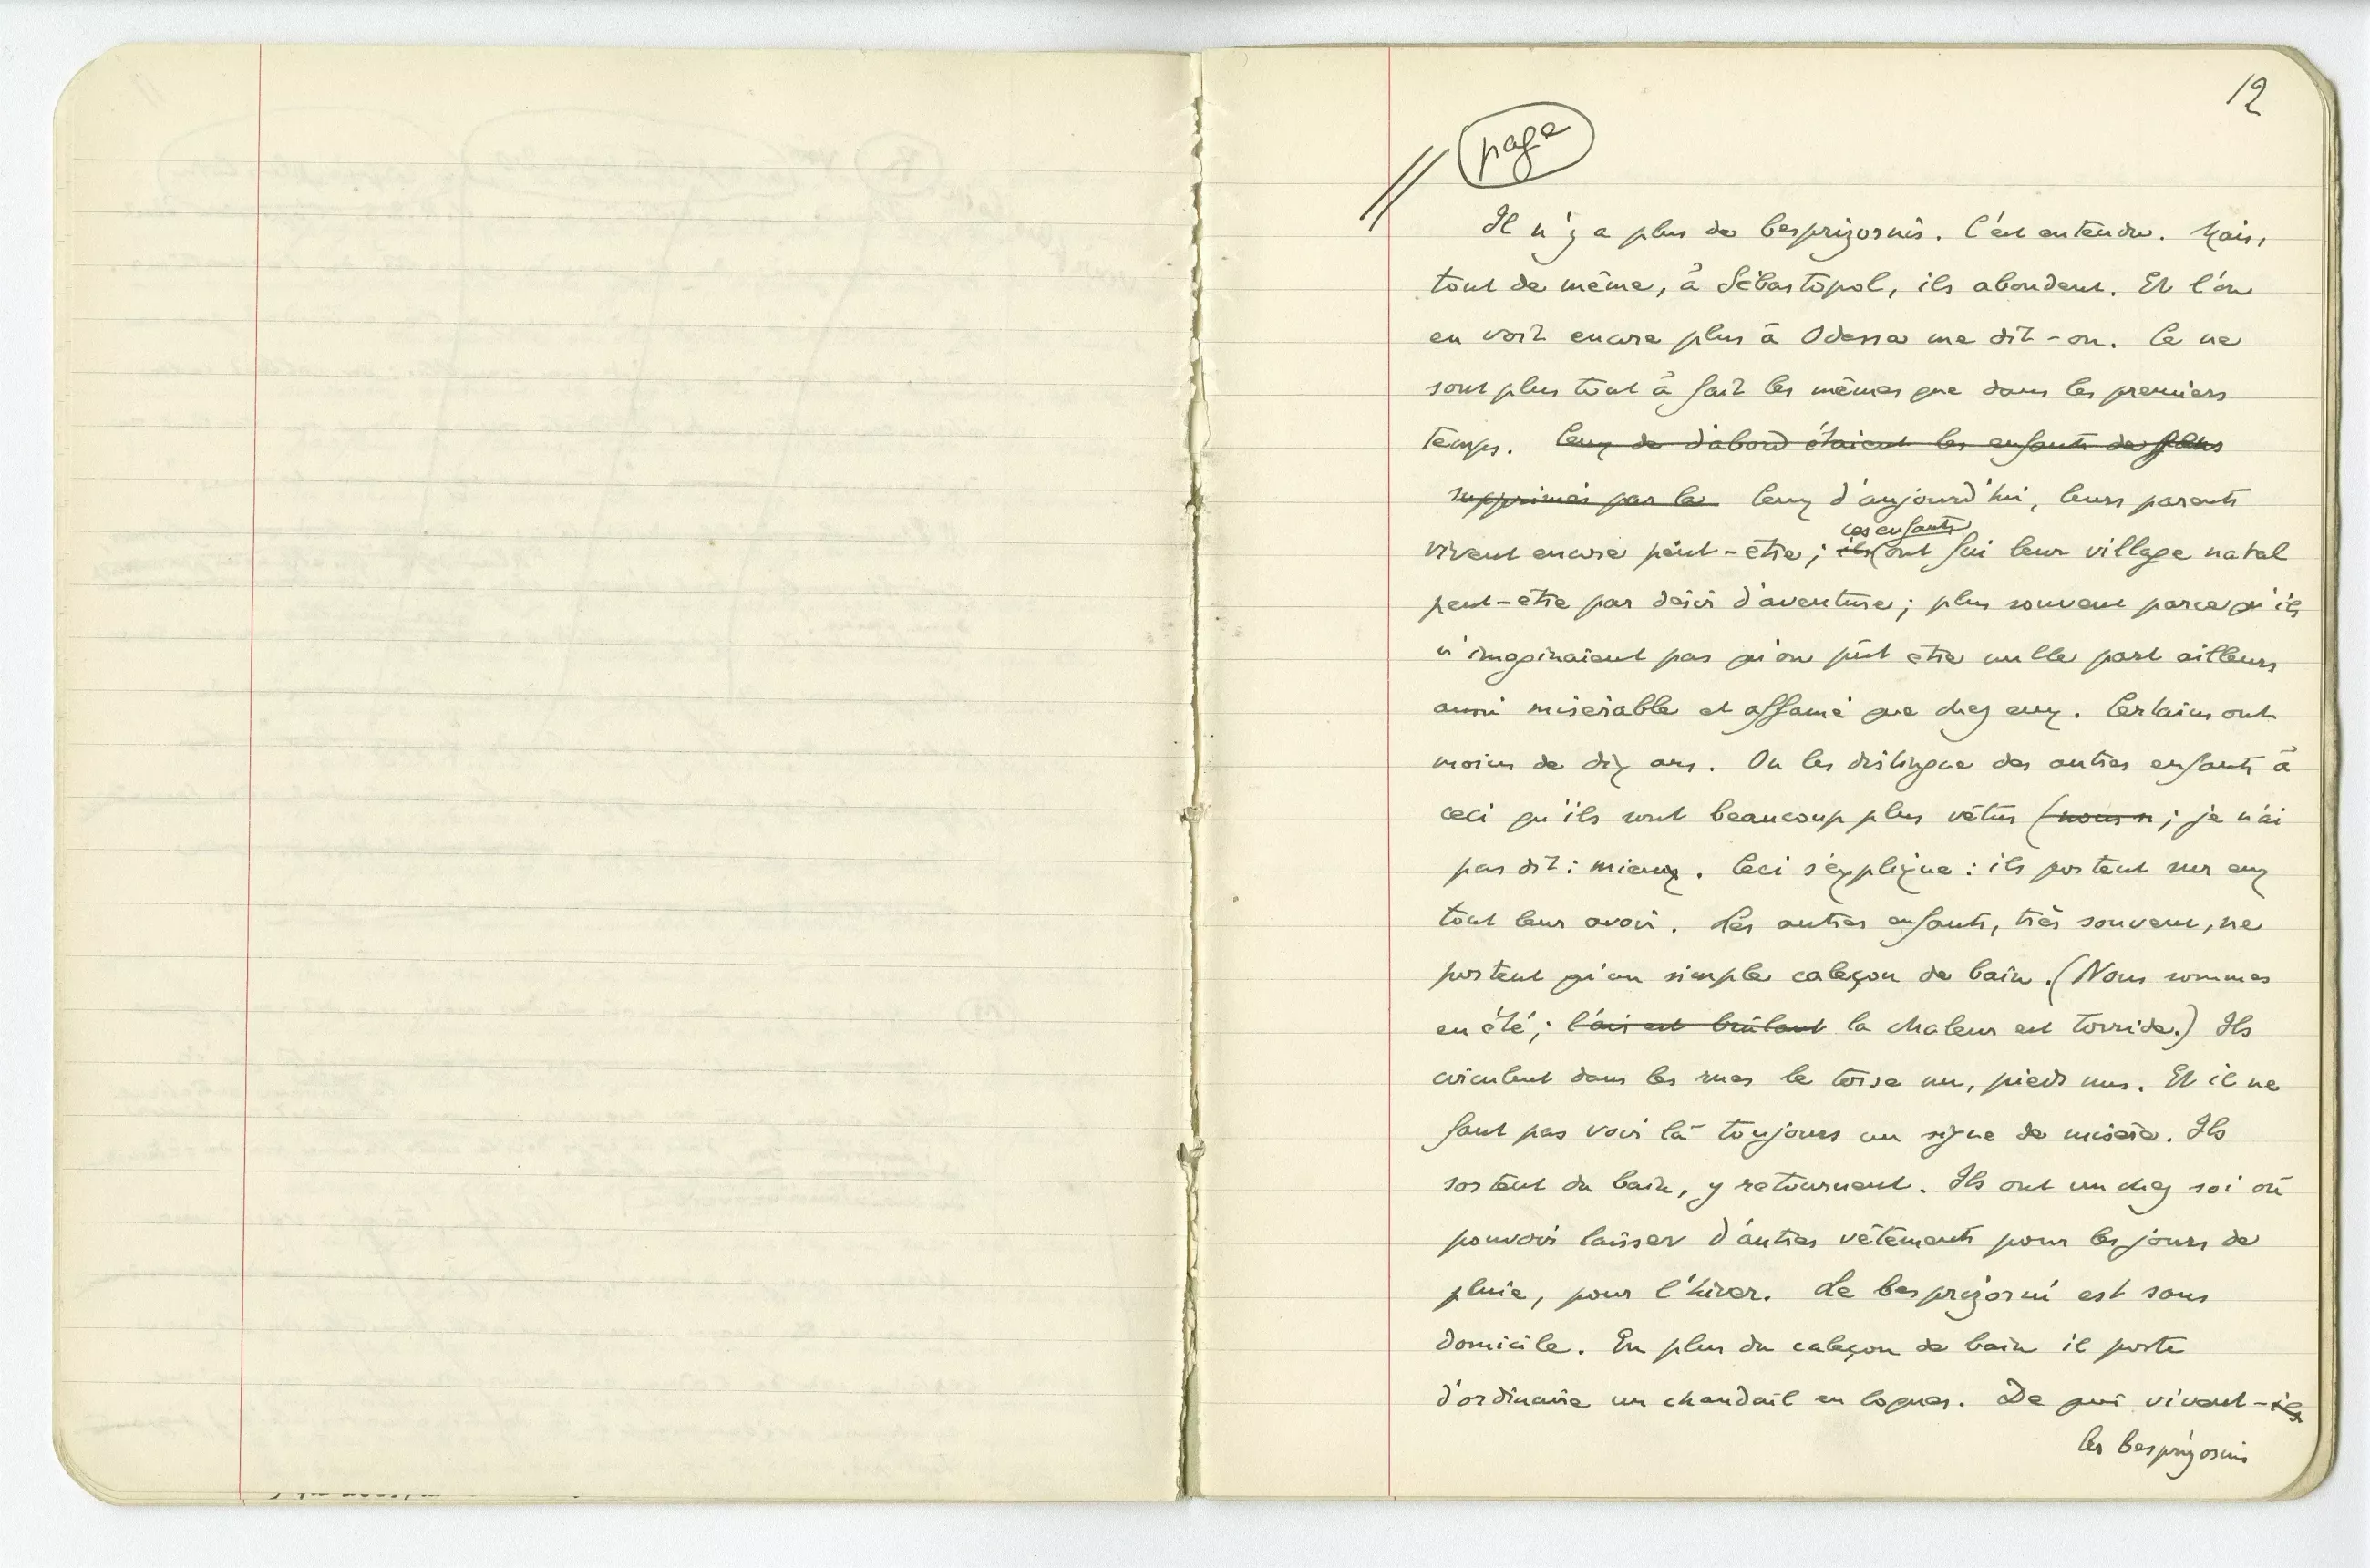 12
page
Il n'y a plus de besprizornis. C'est entendu. Mais,
tout de même, à Sébastopol, ils abondent. Et l'on
en voit encore plus à Odessa me dit-on. Ce ne
sont plus tout à fait les mêmes que dans les premiers
temps. Ceux de d'abord étaient les enfants de gens
supprimés par la Ceux d'aujourd'hui, leurs parents
ces enfants
vivent encore peut-être ; ils ont fui leur village natal
peut-être par désir d'aventure ; plus souvent parce qu'ils
n'imaginaient pas qu'on pût être nulle part ailleurs
aussi misérable et affamé que chez eux. Certains ont
moins de dix ans. On les distingue des autres enfants à
ceci qu'ils sont beaucoup plus vêtus (nous n ; je n'ai
pas dit : mieux. Ceci s'explique : ils portent sur eux
tout leur avoir. Les autres enfants, très souvent, ne
portent qu'un simple caleçon de bain. (Nous sommes
en été ; l'air est brûlant la chaleur est torride.) Ils
circulent dans les rues le torse nu, pieds nus. Et il ne
faut pas voir là toujours un signe de misère. Ils
sortent du bain, y retournent. Ils ont un chez soi où
pouvoir laisser d'autres vêtements pour les jours de
pluie, pour l'hiver. Le besprizorni est sans
domicile. En plus du caleçon de bain il porte
d'ordinaire un chandail en loques. De quoi vivent-ils
les besprizornis